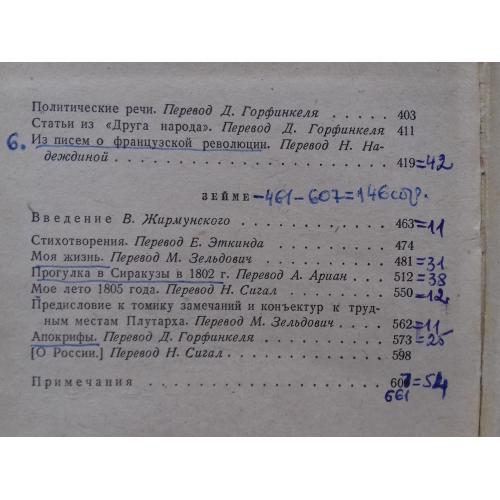 Политические речи. Перевод Д. Горфинкеля . . . . . 403
Статьи из «Друга народа». Перевод Д. Горфинкеля 411
6. Из писем о французской революции. Перевод Н. На-
деждиной . . . . . . . . . . . . . . . 419=42
ЗЕЙМЕ -461-607=146стр.
Введение В. Жирмунского . . . . . . . . . . 463=11
Стихотворения. Перевод Е. Эткинда . . . . . . 474
Моя жизнь. Перевод М. Зельдович . . . . . . . 481=31
Прогулка в Сиракузы в 1802 г. Перевод А. Ариан . 512=38
Мое лето 1805 года. Перевод Н. Сигал . . . . . 550=12
Предисловие к томику замечаний и конъектур к труд-
ным местам Плутарха. Перевод М. Зельдович . . 562=11
Апокрифы. Перевод Д. Горфинкеля . . . . . . . 573=25
[О России.] Перевод Н. Сигал . . . . . . . . . 598
Примечания . . . . . . . . . . . . . . . 607=54
661